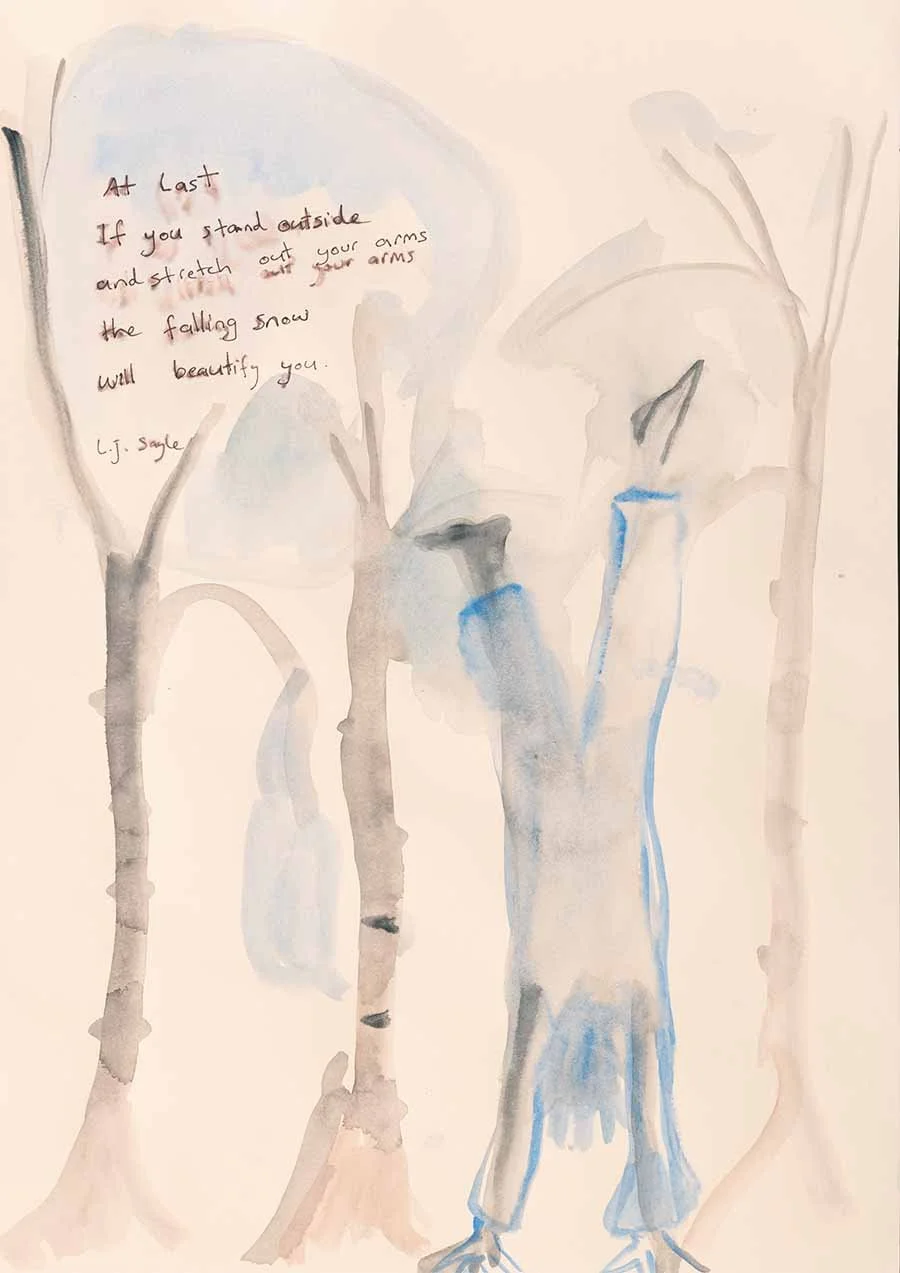 At Last
If you stand outside
and stretch out your arms
the falling snow
will beautify you.
L.J. Sayle